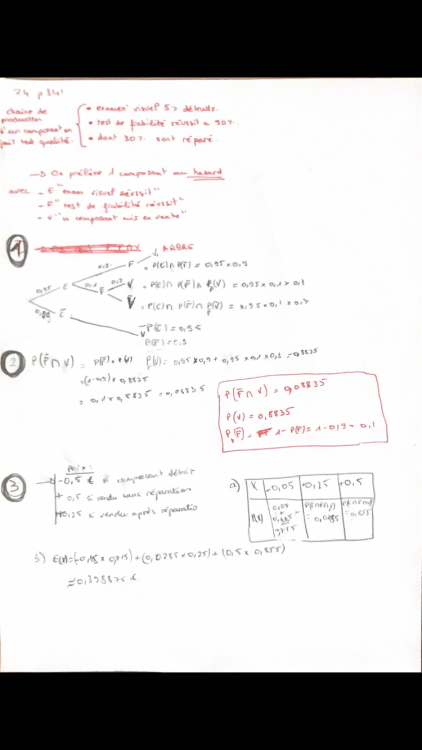 24 p341
chaine de production d'un composant en fait test qualité.
• examen visuel 5% détruits.
• test de fiabilité réussit a 90%.
• dont 30% sont réparé.
→ On prélève 1 composant au hasard
avec - E "exam visuel réussit"
- F "test de fiabilité réussit"
- V "le composant mis en vente"
1
ARBRE
0,95 E 0,9 F = P(E)∩P(F) = 0,95×0,9
0,1 F̄ V = P(E)∩P(F̄)∩P(V) = 0,95×0,1×0,3
V̄ = P(E)∩P(F̄)∩P(V̄) = 0,95×0,1×0,7
Ē
P(E) = 0,95
P(F) = 0,9
2 P(F̄∩V) = P(F̄)×P(V) P(V) = 0,95×0,9+0,95×0,1×0,3 = 0,8835
= (1-0,9)×0,8835
= 0,1×0,8835 = 0,08835
P(F̄∩V) = 0,08835
P(V) = 0,8835
= 1-P(F) = 1-0,9 = 0,1
3 Prix:
→ -0,5 € si composant détruit
+ 0,5 si vendu sans réparation
+0,25 si vendu après réparatio
a) X -0,05 +0,25 +0,5
b) E(X)=(-0,05×0,715)+(0,0285×0,25)+(0,5×0,855)
≈0,398875 €